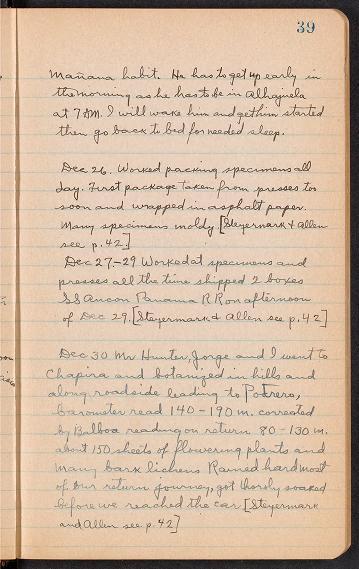 39
Mañana habit. He has to get up early in
the morning as he has to be in Alhajuela
at 7 AM. I will wake him and get him started
then go back to bed for needed sleep.
Dec 26. Worked packing specimens all
day. First package taken from presses too
soon and wrapped in asphalt paper.
Many specimens moldy. [Steyermark & Allen
see p. 42]
Dec 27-29 Worked at specimens and
presses all the time shipped 2 boxes
SS Ancon Panama R R on afternoon
of Dec 29. [Steyermark & Allen see p. 42]
Dec 30 Mr Hunter, Jorge and I went to
Chapira and botanized in hills and
along roadside leading to Potrero,
barometer read 140-190 m. corrected
by Balboa reading on return 80-130 m.
about 150 sheets of flowering plants and
many bark lichens Rained hard most
of our return journey, got thoroly soaked
before we reached the car [Steyermark
and Allen see p. 42]